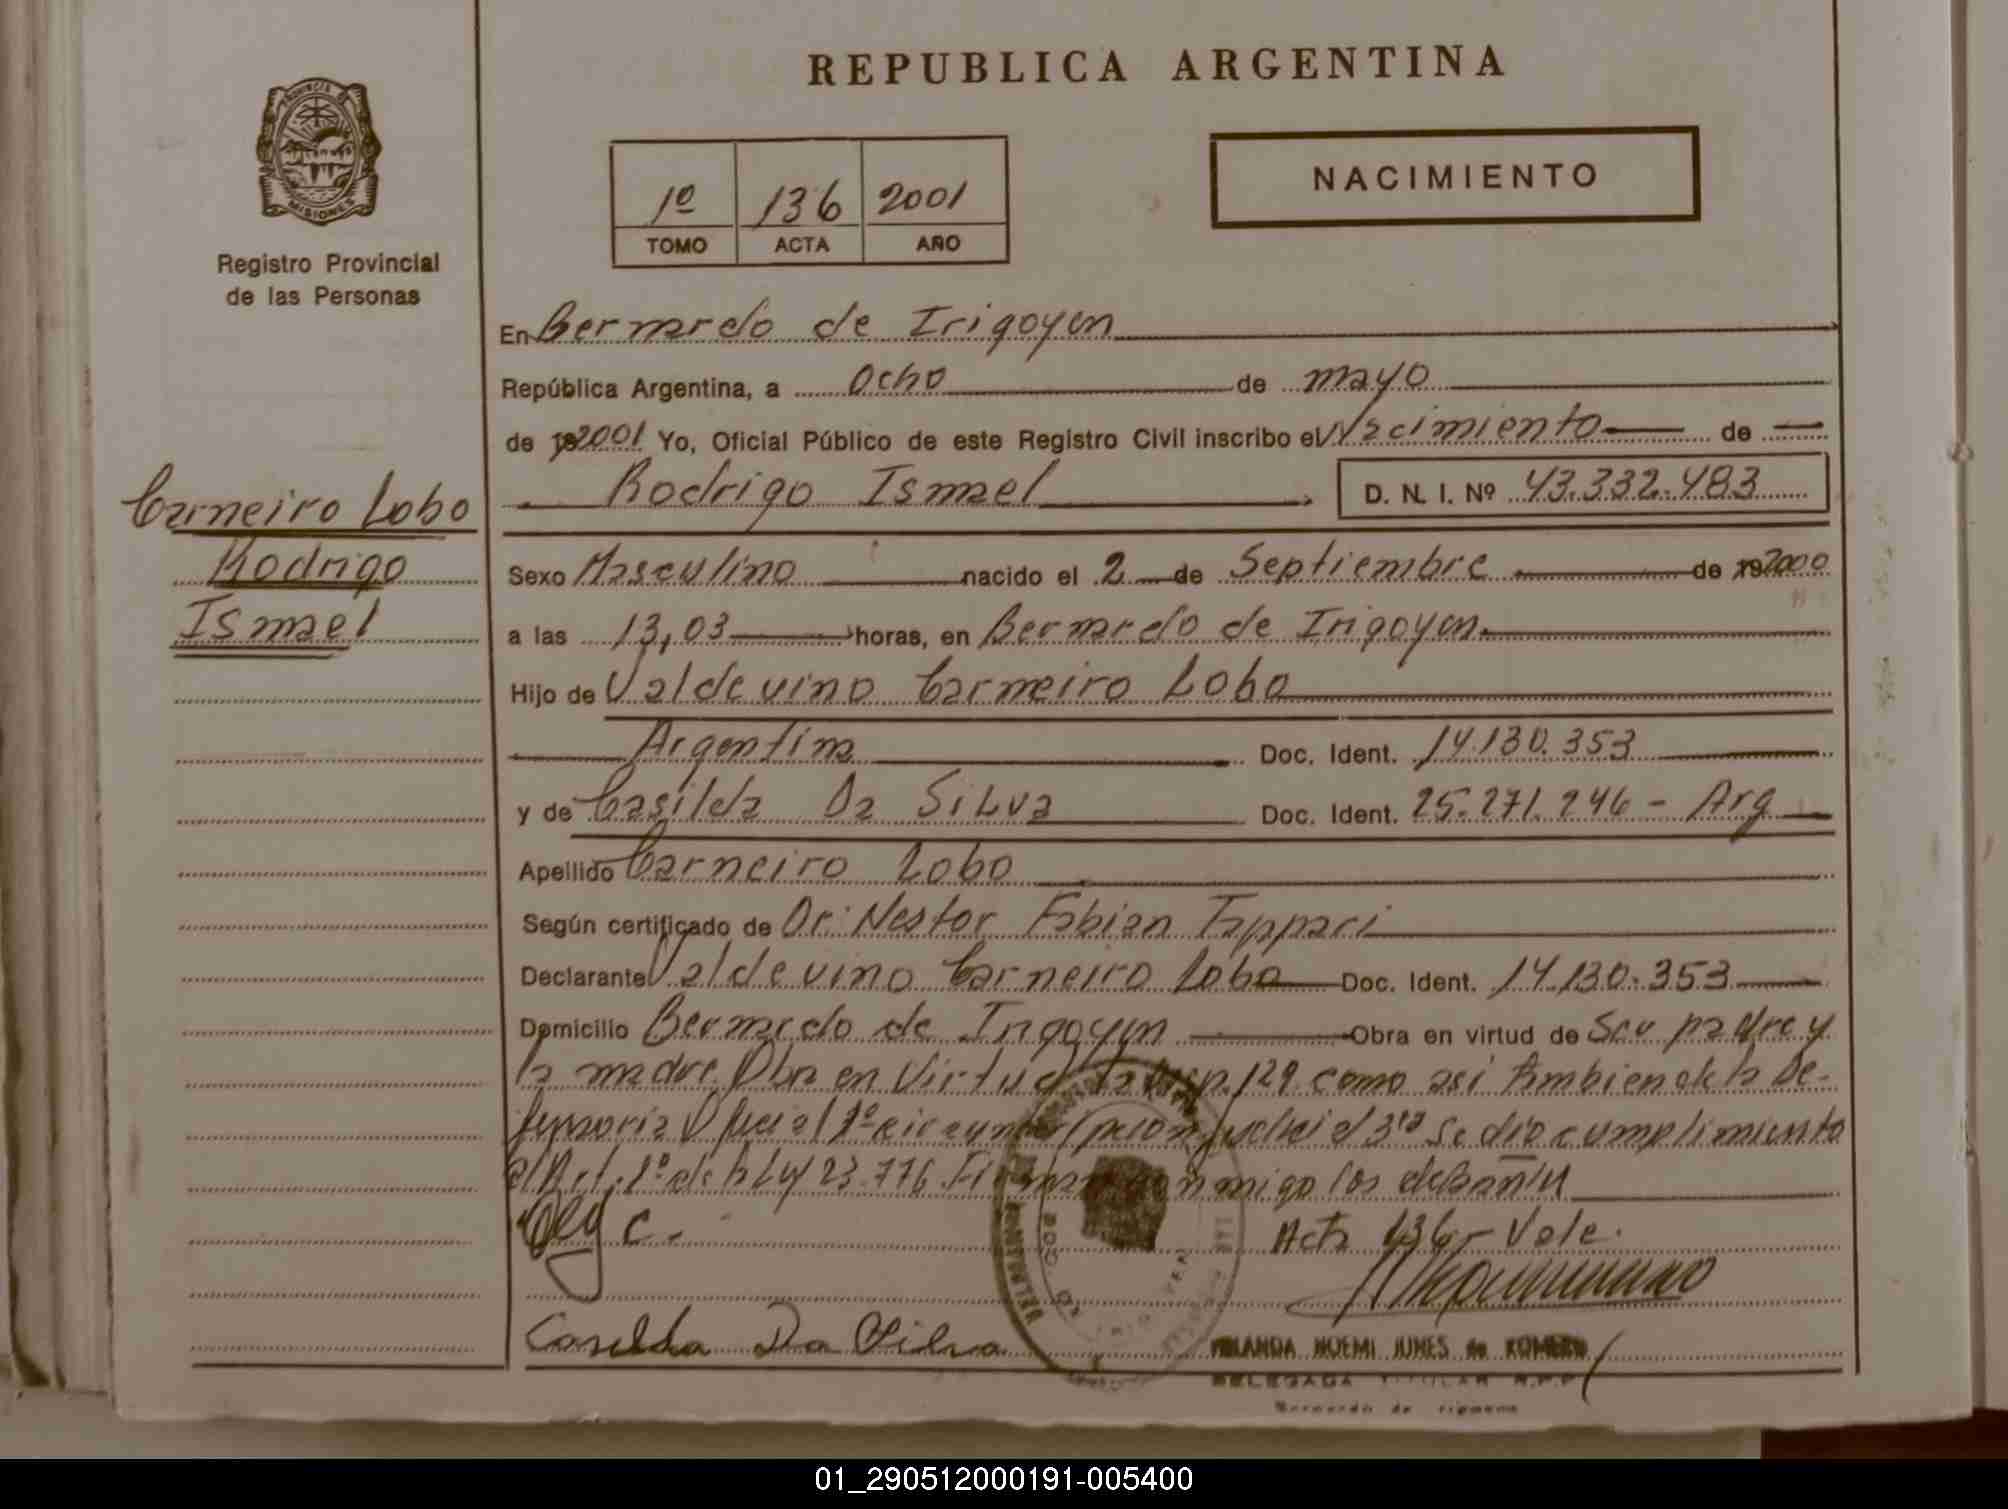 REPUBLICA ARGENTINA
PROVINCIA DE
MISIONES
Registro Provincial
de las Personas
1º 136 2001
TOMO ACTA AÑO
NACIMIENTO
En Bernardo de Irigoyen
República Argentina, a Ocho de mayo
de 192001 Yo, Oficial Público de este Registro Civil inscribo el Nacimiento de
Rodrigo Ismael D. N. I. Nº 43.332.483
Carneiro Lobo
Rodrigo
Ismael
Sexo Masculino nacido el 2 de Septiembre de 192000
a las 13,03 horas, en Bernardo de Irigoyen
Hijo de Valdevino Carneiro Lobo
Argentina Doc. Ident. 14.130.353
y de Casilda Da Silva Doc. Ident. 25.271.246 - Arg
Apellido Carneiro Lobo
Según certificado de Dr. Nestor Fabian Tappari
Declarante Valdevino Carneiro Lobo Doc. Ident. 14.130.353
Domicilio Bernardo de Irigoyen Obra en virtud de Ser padre y
la madre Obra en Virtud 129 como asi tambien de la De-
fensoria Oficial 1º 3ra se dio cumplimiento
al Art. 1º de la Ley 23.776. conmigo los
C. Acta 136 - Vale.
Casilda Da Silva
NOEMI JUNES de ROMERO
DELEGADA TITULAR R.P.P
Bernardo de Irigoyen
01_290512000191-005400